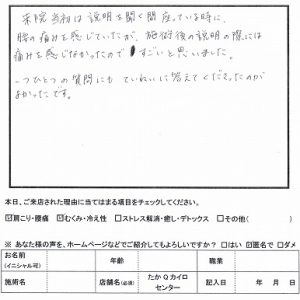 来院当初は説明を聞く間座っている時に、
腰の痛みを感じていたが、施術後の説明の際には
痛みを感じなかったのですごいと思いました。
一つひとつの質問にもていねいに答えてくださったのが
よかったです。
本日、ご来店された理由に当てはまる項目をチェックしてください。
☑肩こり・腰痛 ☑むくみ・冷え性 □ストレス解消・癒し・デトックス □その他( )
※ あなた様の声を、ホームページなどでご紹介してもよろしいですか? □はい ☑匿名で □ダメ
お名前 (イニシャル可) 年齢 職業
施術名 店舗名(必須) たかQカイロセンター 記入日 年 月 日